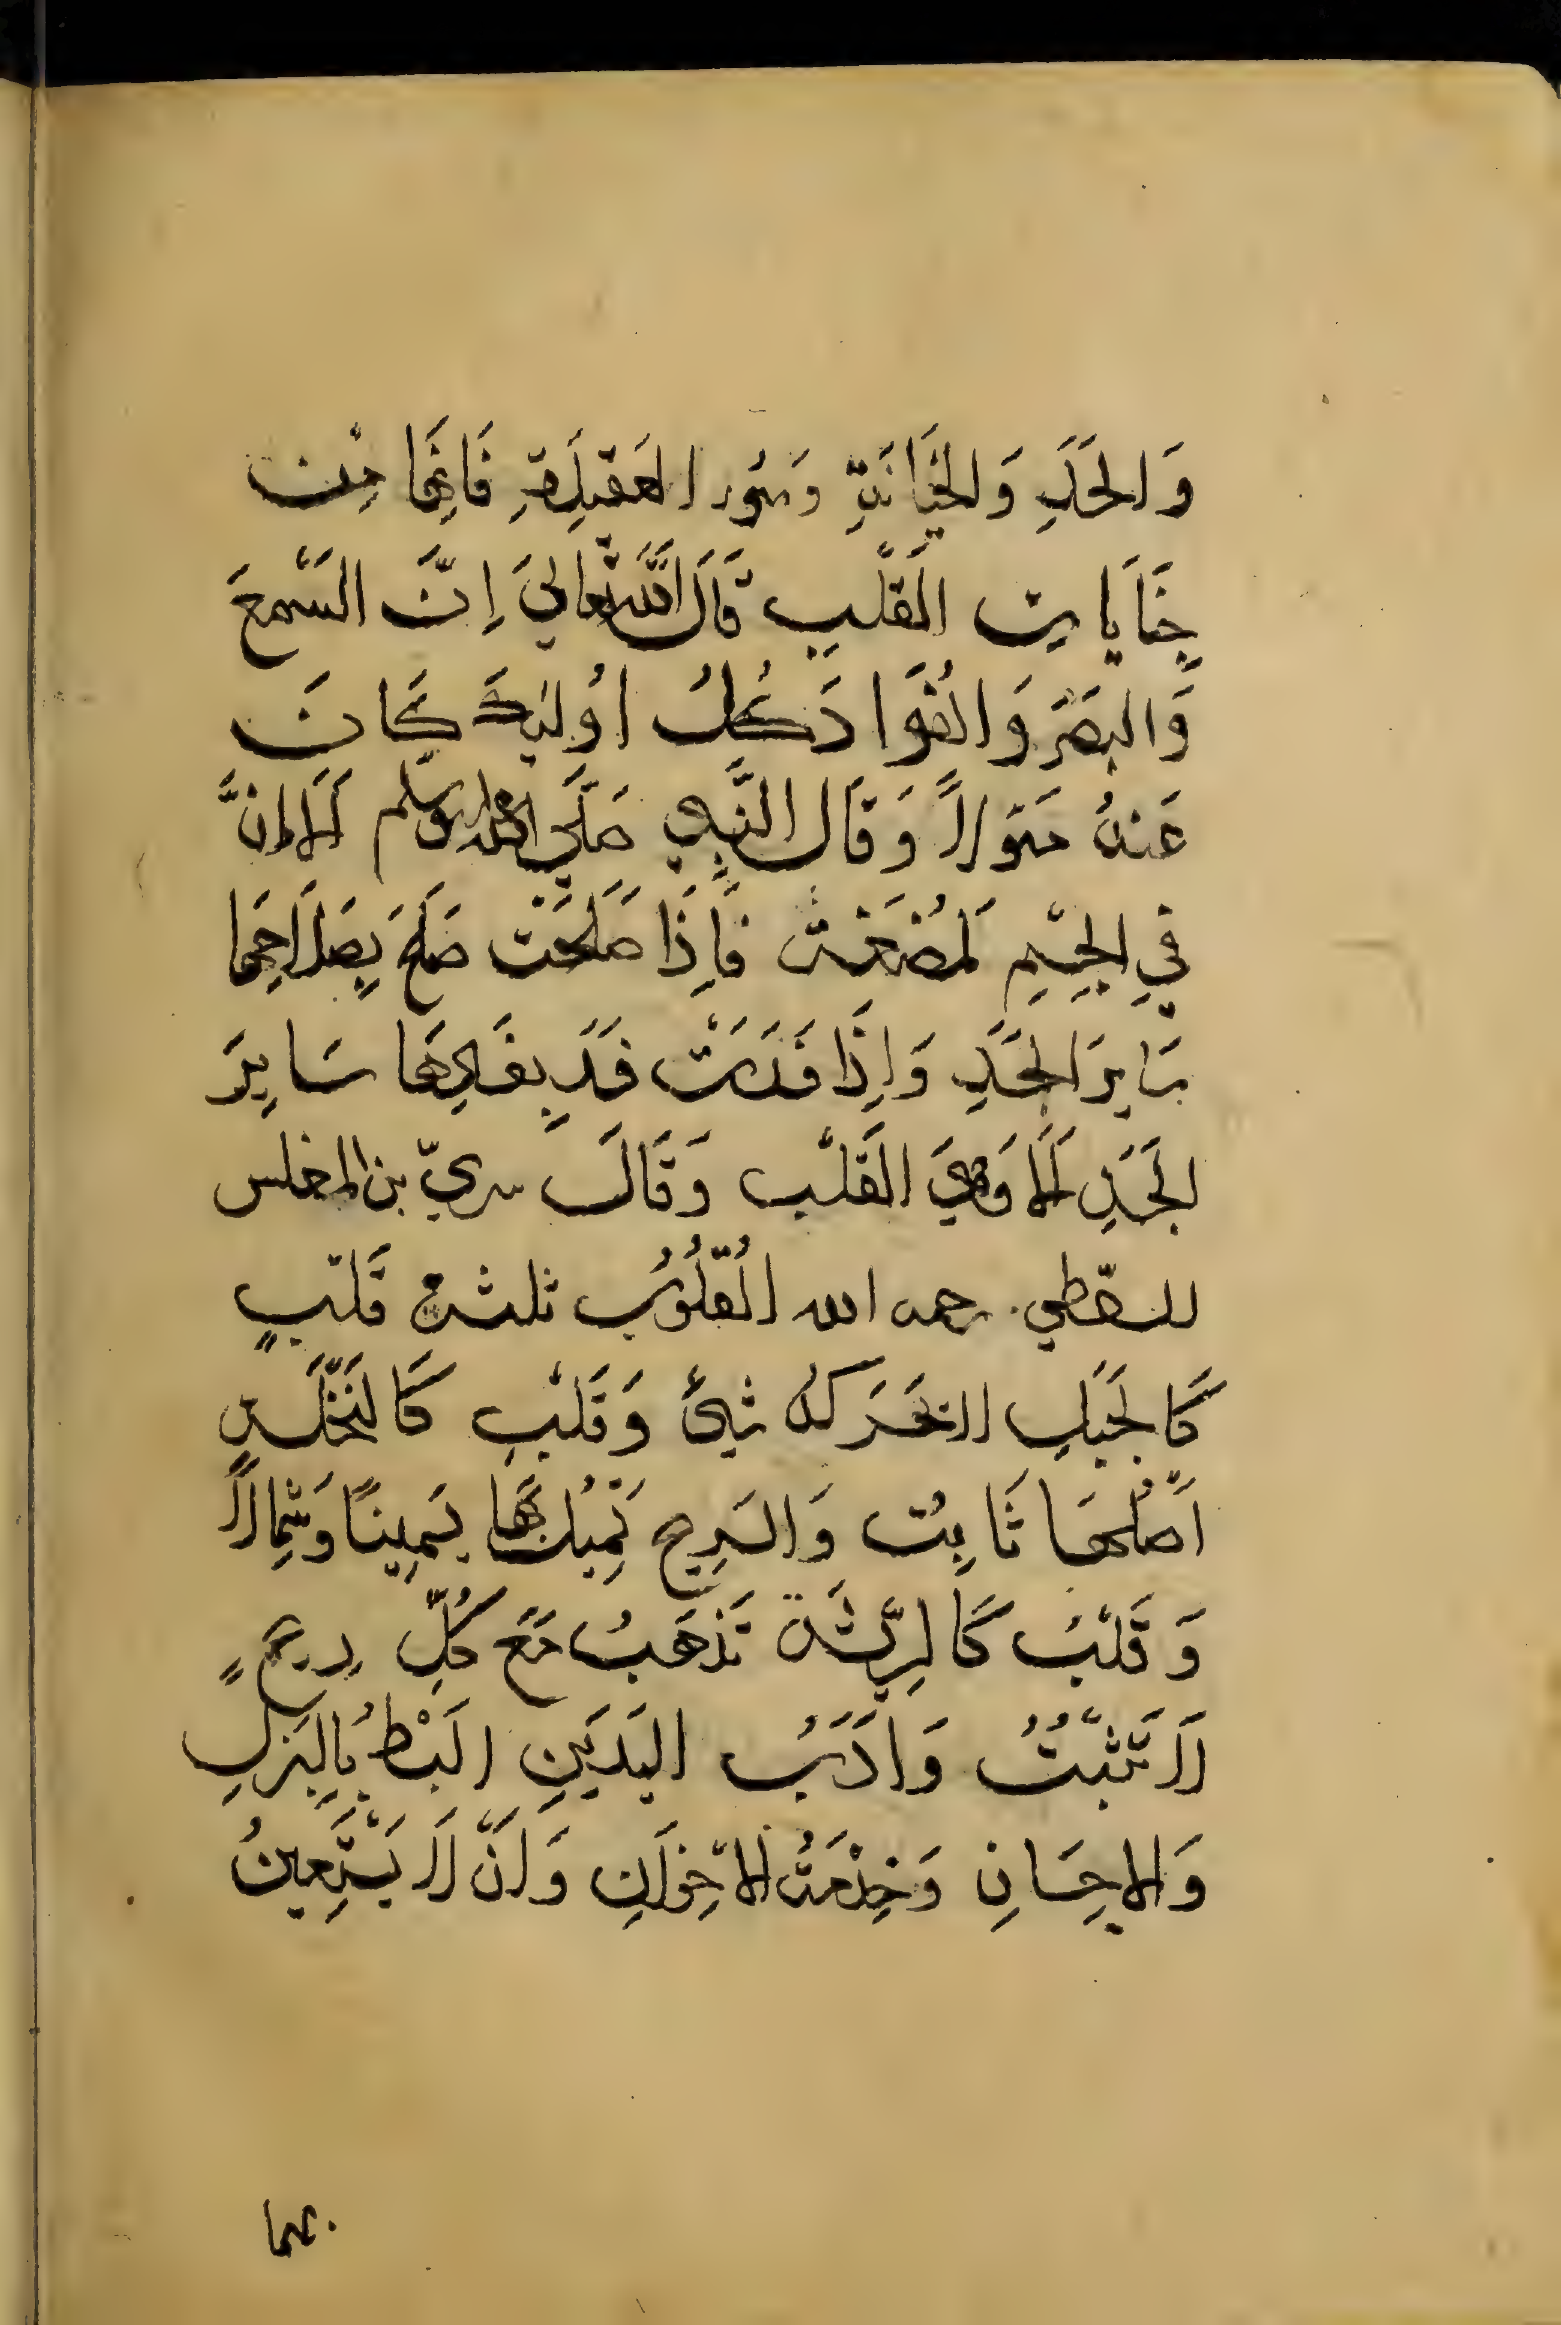 وَالحَسَدِ وَالخِيَانَةِ وَسُوءِ العَقِيلَةِ فَانَّهَا مِنْ
جِنَايَاتِ القَلْبِ قَالَ اللَّهُ تَعَالَى اِنَّ السَّمْعَ
وَالبَصَرَ وَالفُوَادَ كُلُّ اُولَئِكَ كَانَ
عَنْهُ مَسْؤُلاً وَقَالَ النَّبِيِ صَلَّى الله عليه وسلم اَلَا اِنَّ
فِي الجِسْمِ لَمُضْغَتْ فَاِذَا صَلَحَتْ صَلَحَ بِصَلَاحِهَا
سَايِرَ الجَسَدِ وَاِذَا فَسَدَتْ فَسَدَ بِفَسَادِهَا سَايِرَ
الجَسَدِ اَلَا وَهِيَ القَلْب وَقَالَ سري بن المغلس
السقطي رحمه الله القُلُوبُ ثلثة قَلْبٍ
كَالجَبَلِ لا تحَركه شيئ وَقَلْبِ كَالنَّخْلَةِ
اَصْلُهَا ثَابِتُ وَالرِيح تَمِيلُ بِهَا يَمِينًا وَشِمَالاً
وَقَلْبُ كَالرِّيْشَةِ تَذْهَبُ مَعَ كُلِّ رِيحٍ
لَا تَثْبُتُ وَاَدَبُ اليَدَينِ البَسْطُ بِالبِرِّ
وَالاِحْسَانِ وَخِدْمَةُ الاِخْوَانِ وَاَنْ لَا يَسْتَعِينُ
بهما